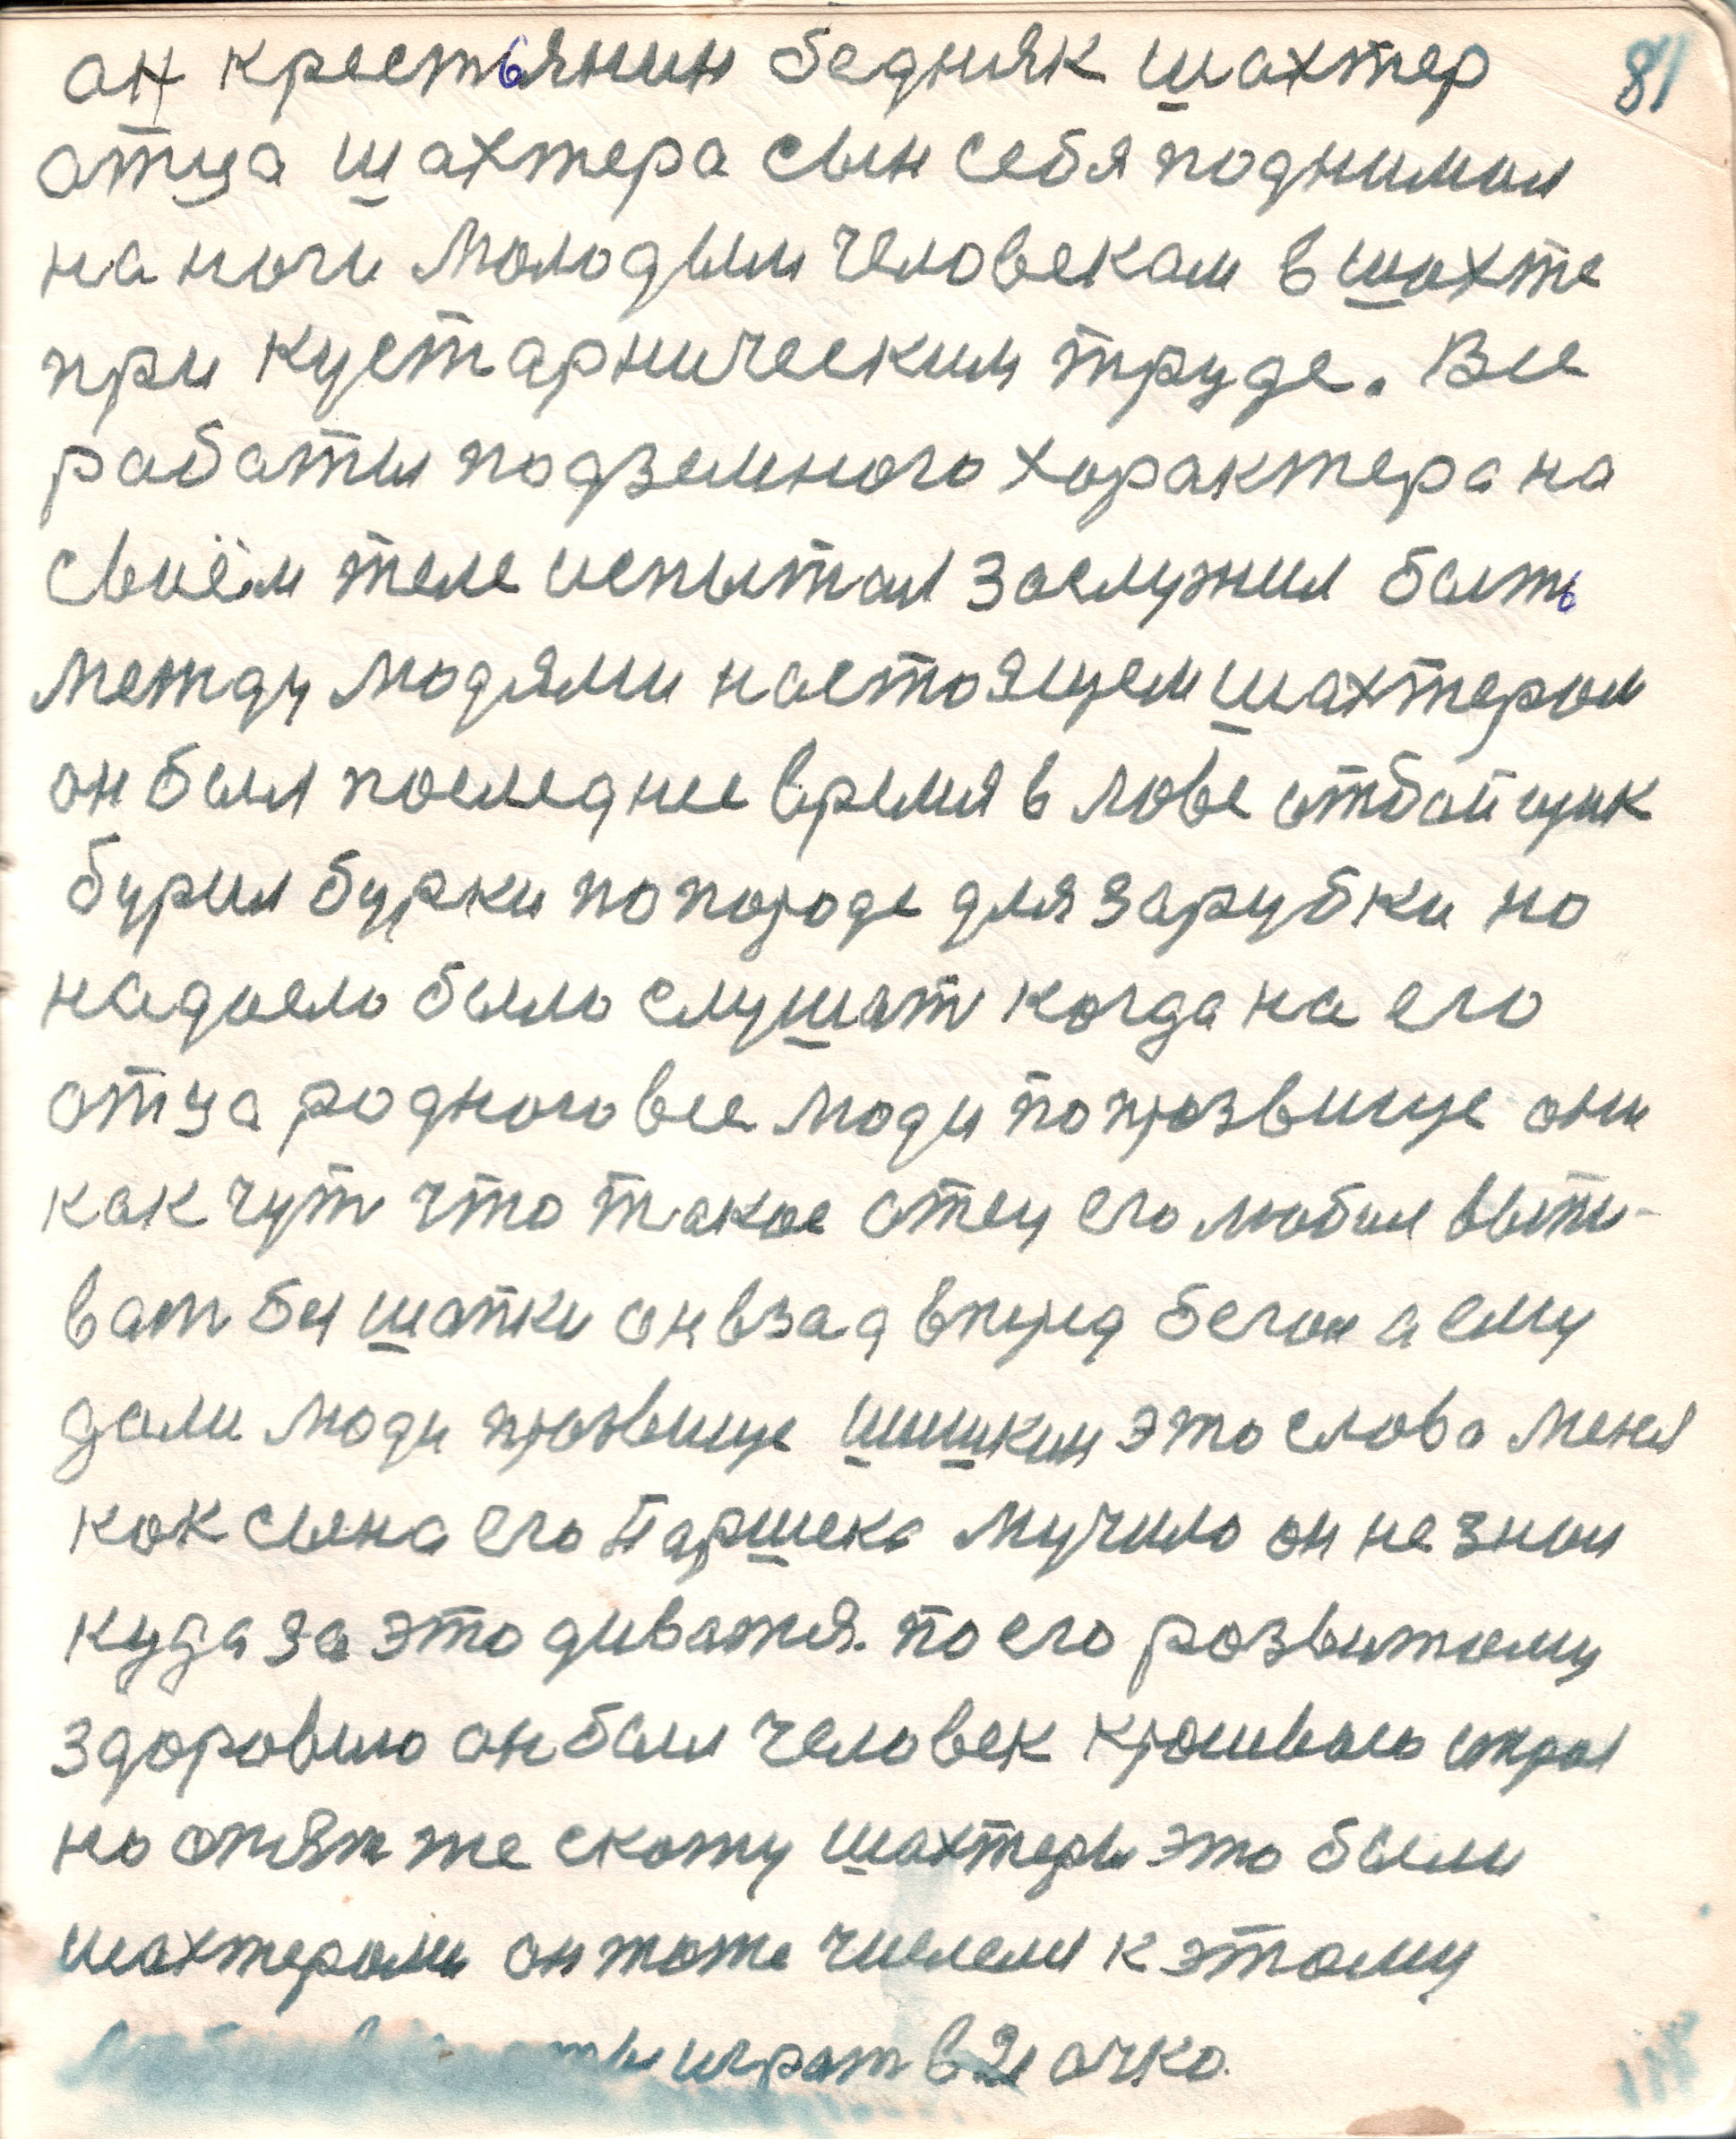 81
он крестьянин бедняк шахтер
отца шахтера сын себя поднимал
на ноги молодым человекам в шахте
при кустарническим труде. Все
работы подземного характера на
своём теле испытал заслужил быть
между людями настоящем шахтером
он был последнее время в лаве отбойщик
бурил бурки по породе для зарубки но
надоело было слушат когда на его
отца родного все люди по прозвище они
как чут что такое отец его любил выпи-
ват был шапки он взад вперед бегал а ему
дали люди прозвище шишкин это слова меня
как сына его Паршека мучило он не знал
куда за это диватся. по его розвитому
здоровию он был человек играл
но опять же скажу шахтеры это были
шахтерами он тоже числелся к этому
играт в 21 очко.